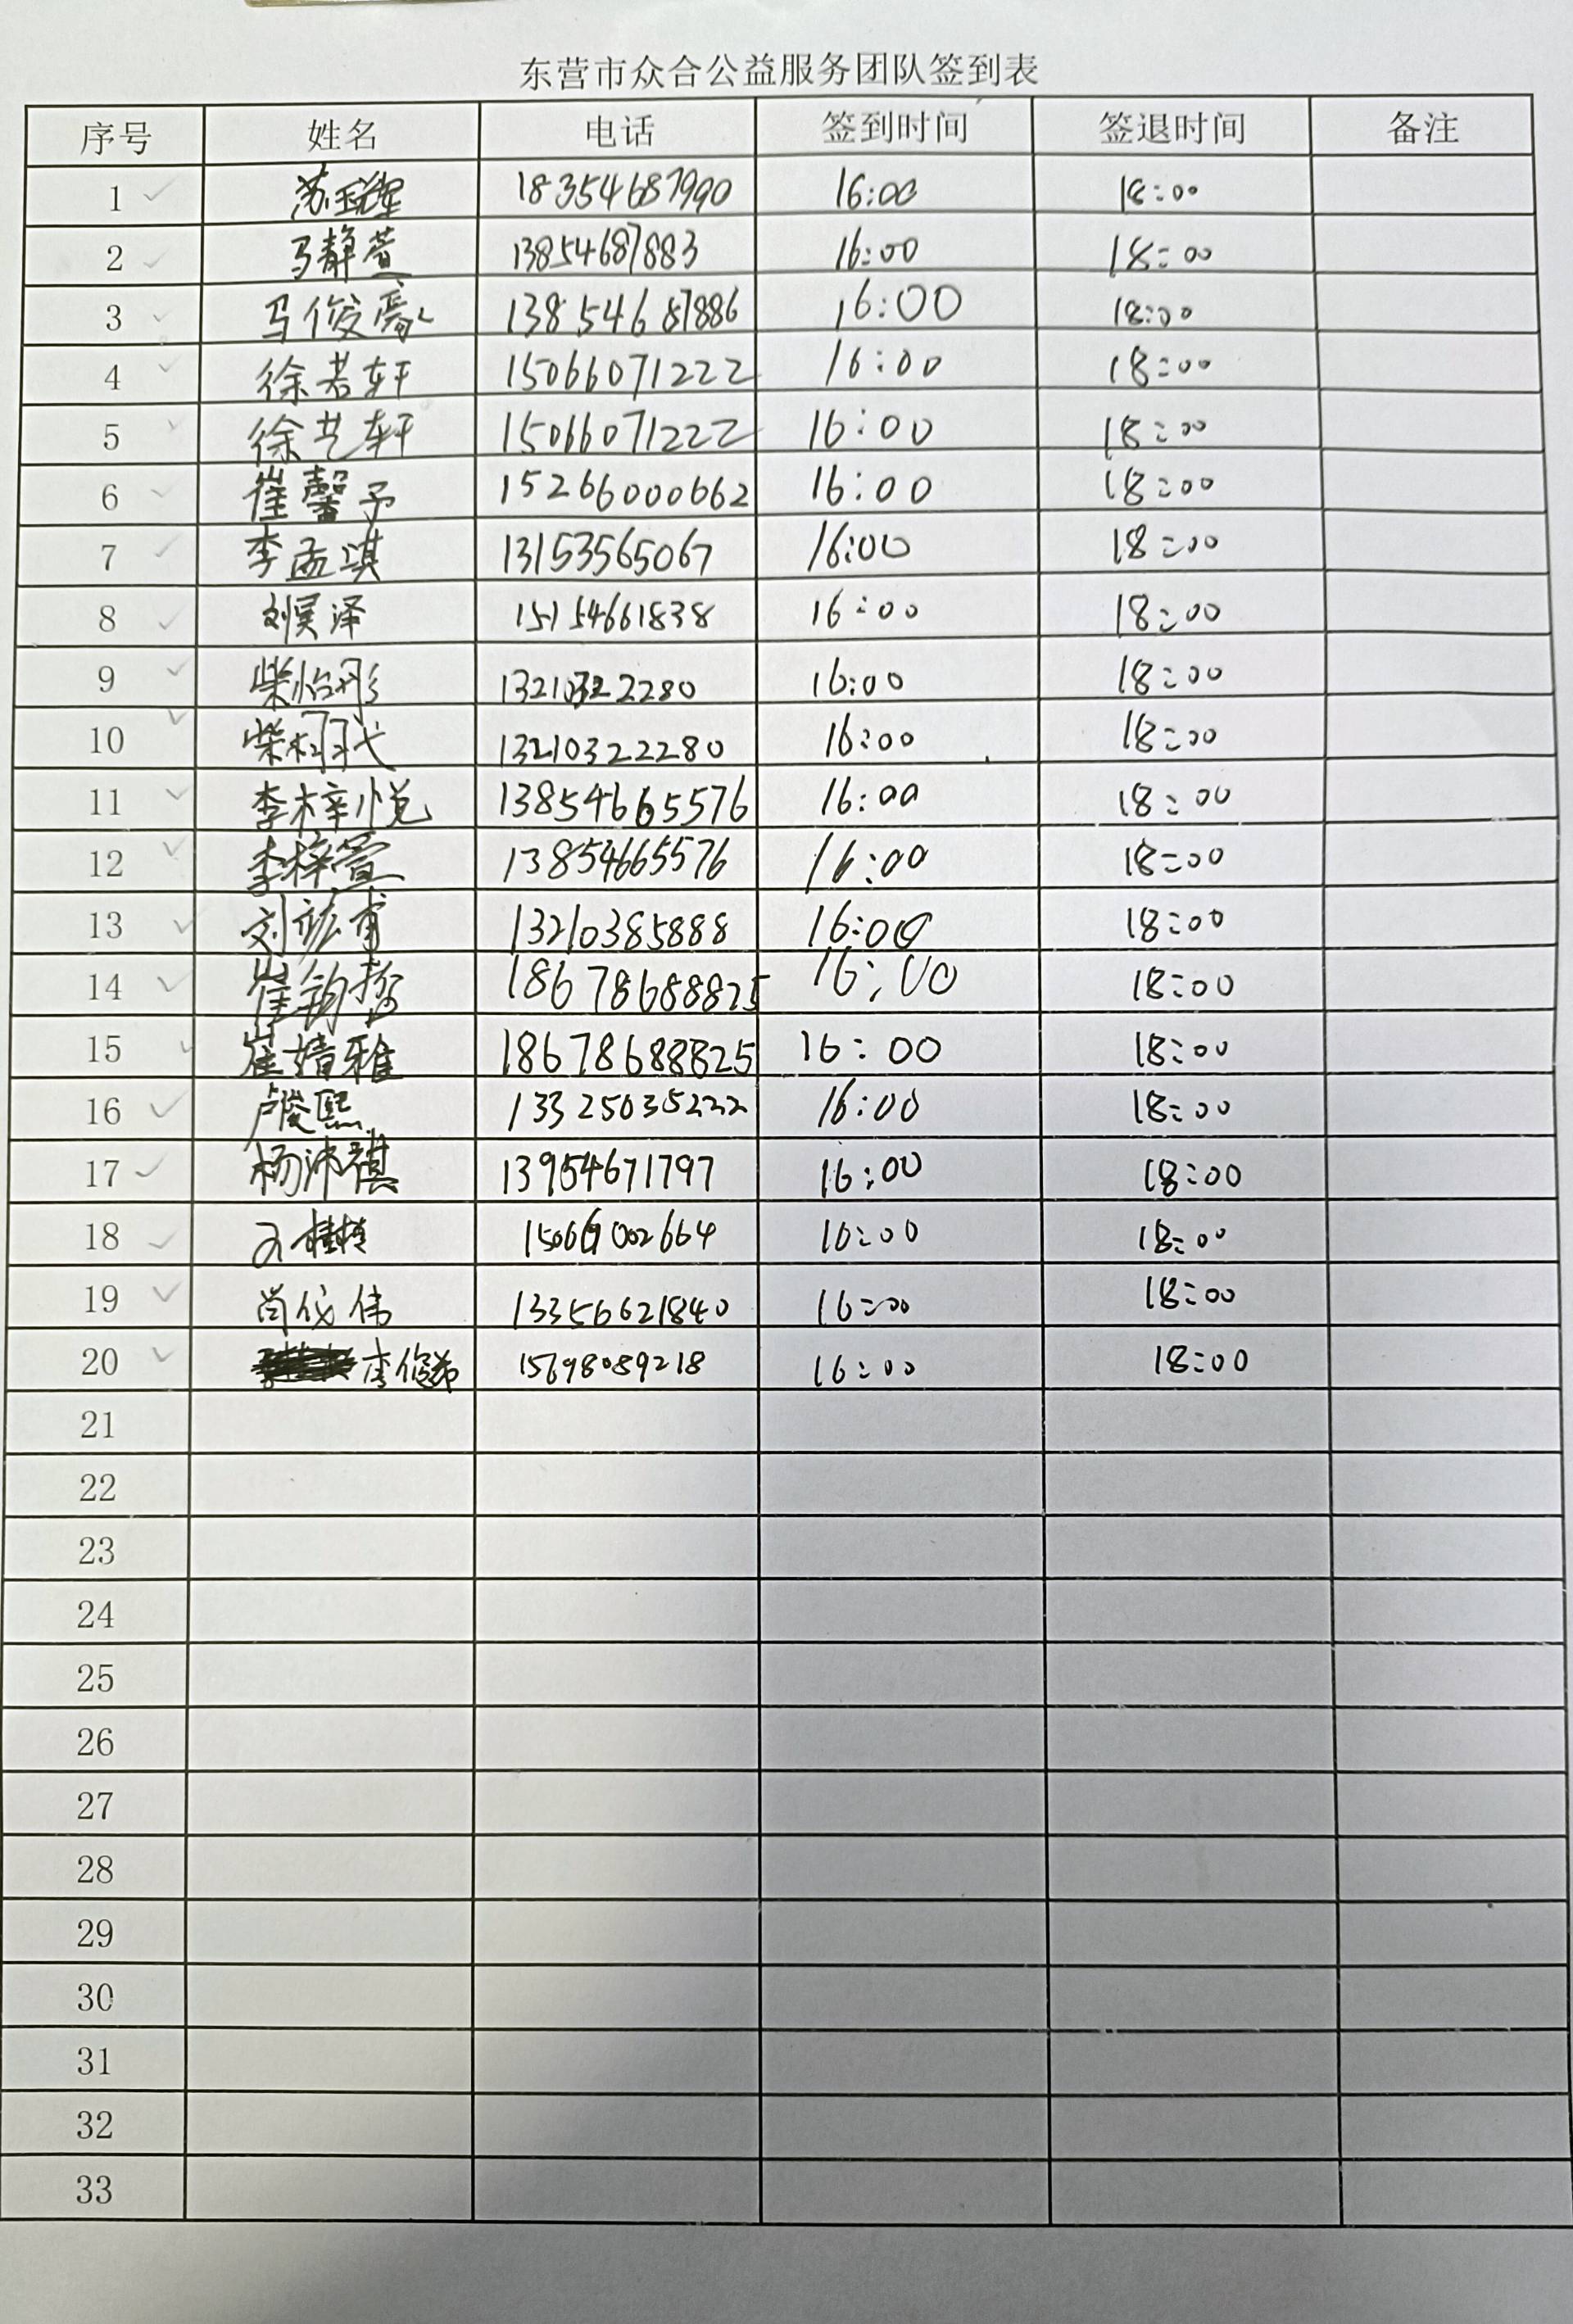 东营市众合公益服务团队签到表
序号 姓名 电话 签到时间 签退时间 备注
1 苏钰辉 18354687990 16:00 18:00
2 马静萱 13854687883 16:00 18:00
3 马俊豪 13854687886 16:00 18:00
4 徐若轩 15066071222 16:00 18:00
5 徐艺轩 15066071222 16:00 18:00
6 崔馨予 15266000662 16:00 18:00
7 李孟淇 13153565067 16:00 18:00
8 刘昊泽 15154661838 16:00 18:00
9 柴怡彤 13210322280 16:00 18:00
10 柴 13210322280 16:00 18:00
11 李梓悦 13854665576 16:00 18:00
12 李梓萱 13854665576 16:00 18:00
13 刘 13210385888 16:00 18:00
14 崔 18678688825 16:00 18:00
15 崔婧雅 18678688825 16:00 18:00
16 卢俊熙 13325035222 16:00 18:00
17 杨沛祺 13954671797 16:00 18:00
18 16:00 18:00
19 尚仪伟 13356621840 16:00 18:00
20 李 15698089218 16:00 18:00
21
22
23
24
25
26
27
28
29
30
31
32
33